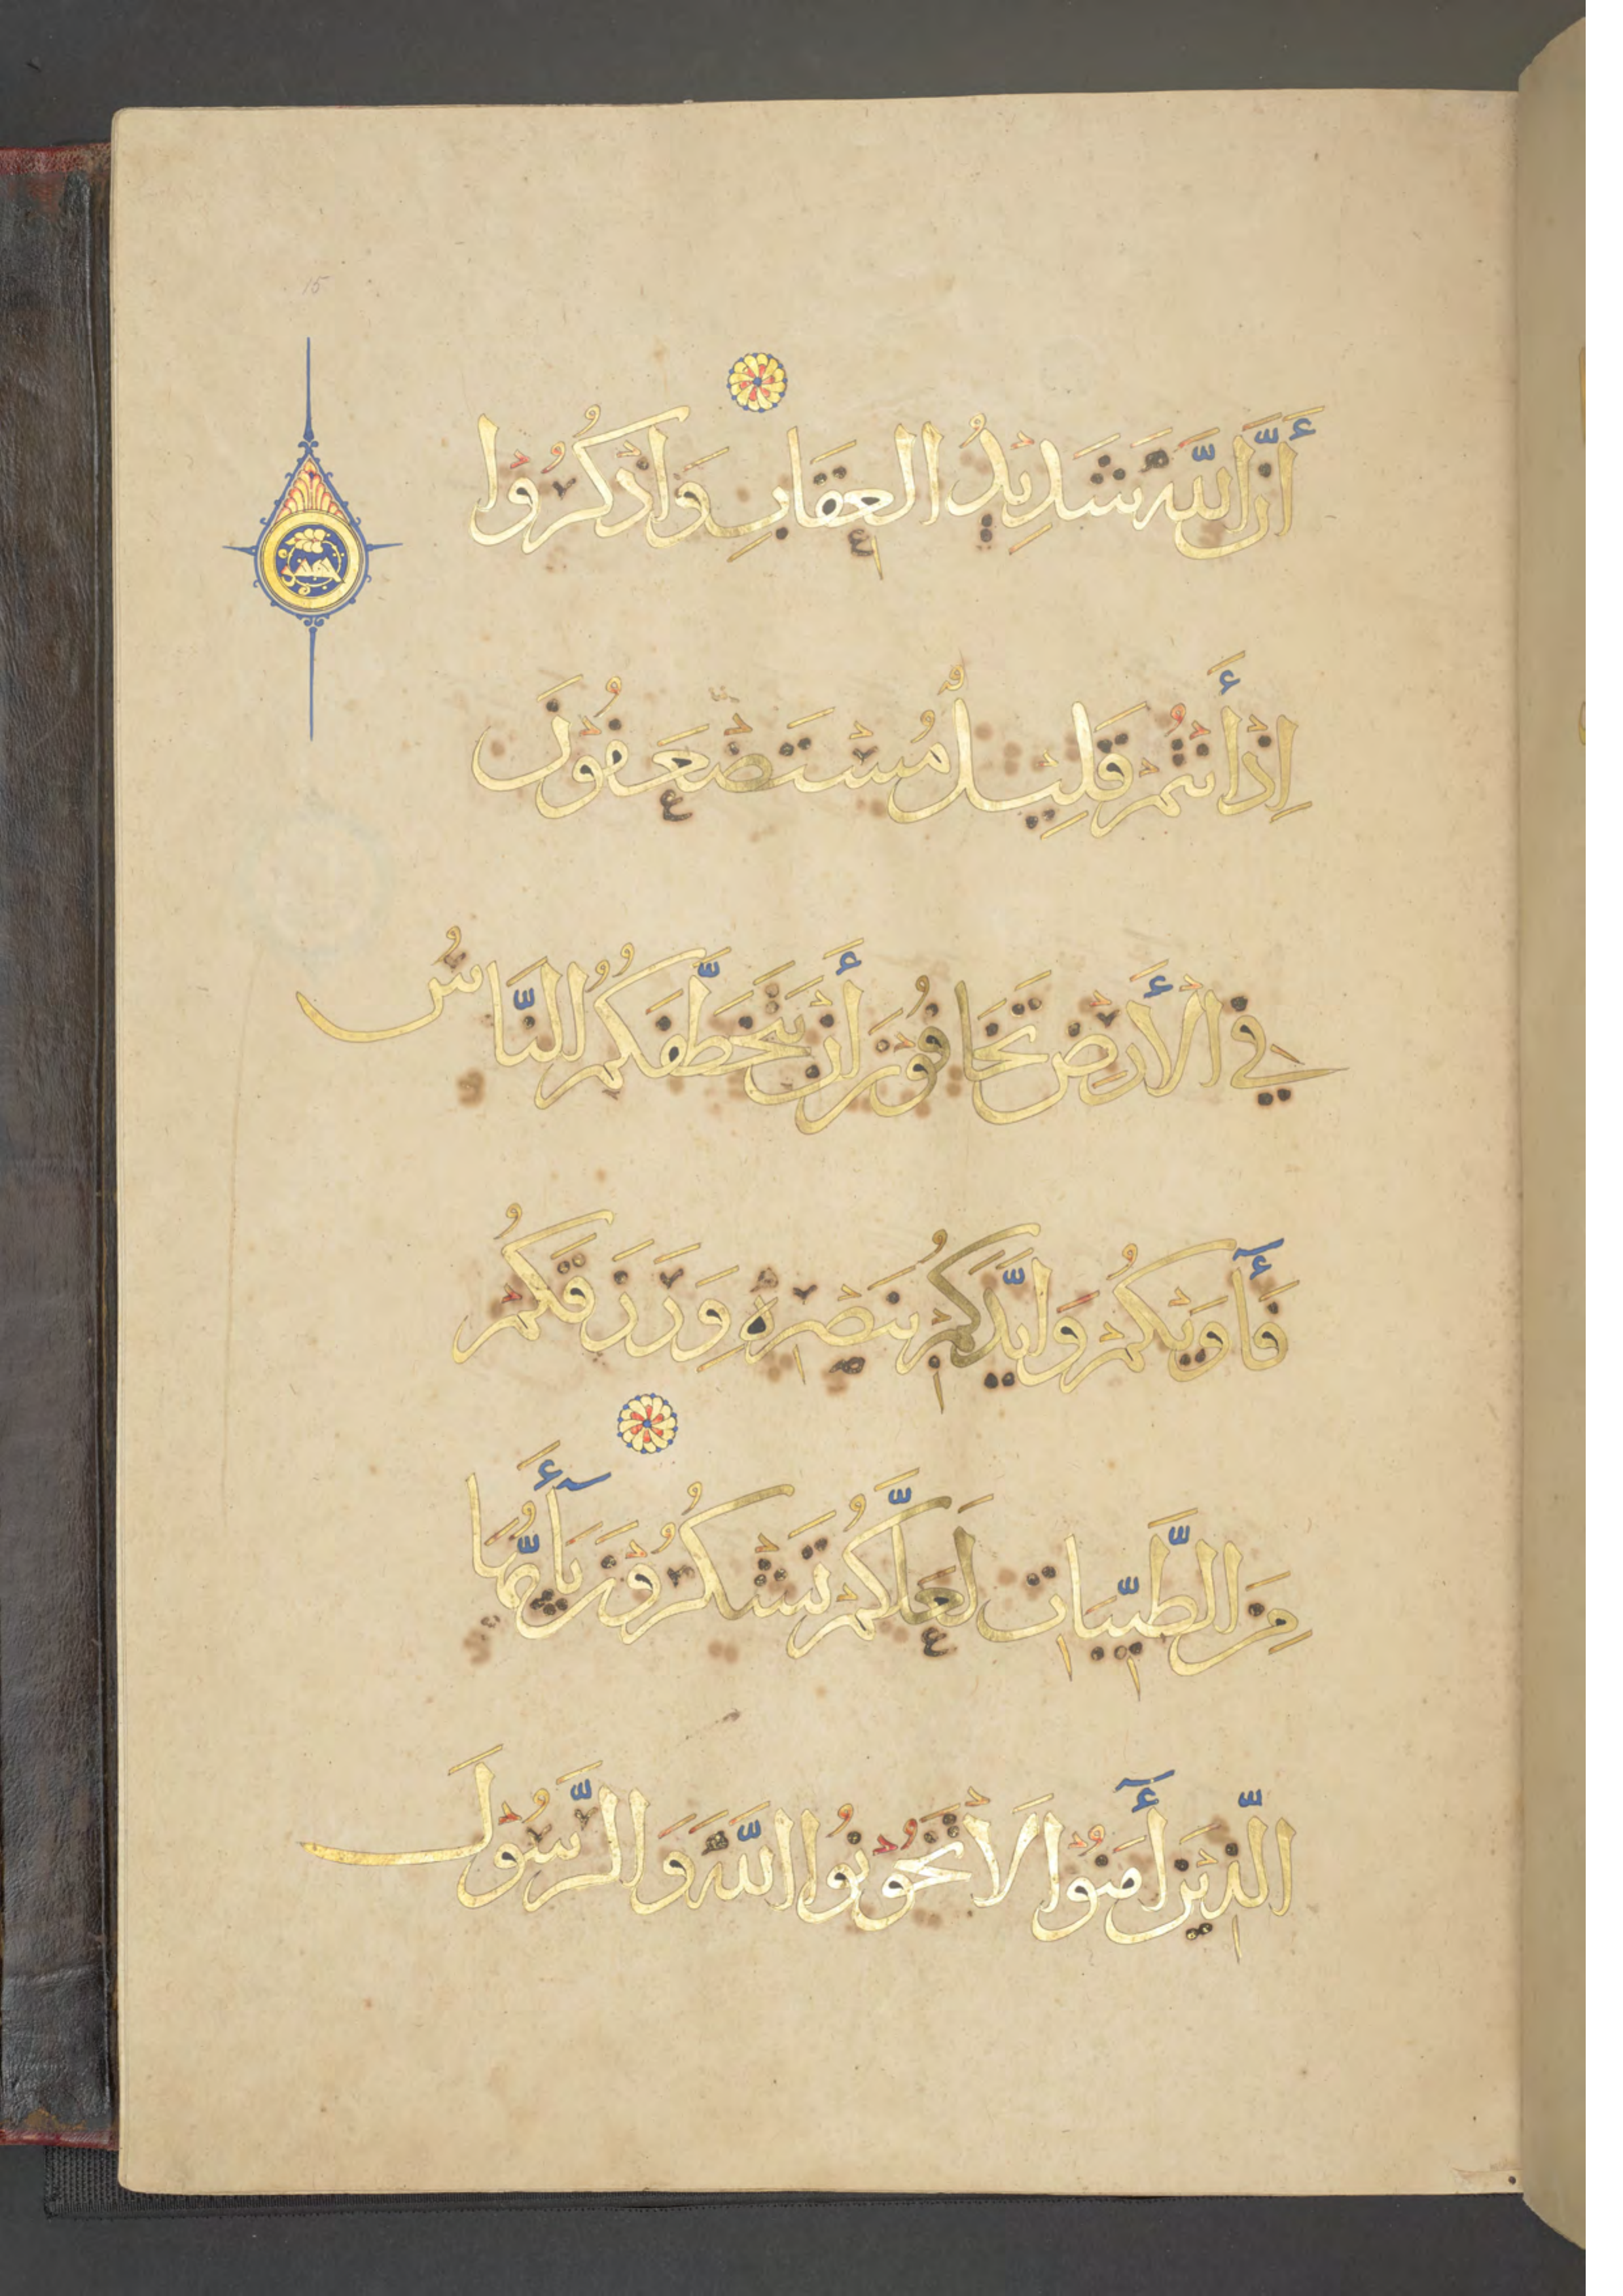 أَنَّ اللَّهَ شَدِيدُ الْعِقَابِ وَاذْكُرُوا
خمس
15
اِذْ أَنْتُمْ قَلِيْلٌ مُسْتَضْعَفُوْنَ
فِي الْأَرْضِ تَخَافُوْنَ أَنْ يَتَخَطَّفَكُمُ النَّاسُ
فَأٰوَيٰكُمْ وَاَيَّدَكُمْ بِنَصْرِهِ وَرَزَقَكُمْ
مِنَ الطَّيِّبَاتِ لَعَلَّكُمْ تَشْكُرُوْنَ يَأَيُّهَا
الَّذِيْنَ أٰمَنُوْا لَا تَخُوْنُوا اللَّهَ وَالرَّسُوْلَ